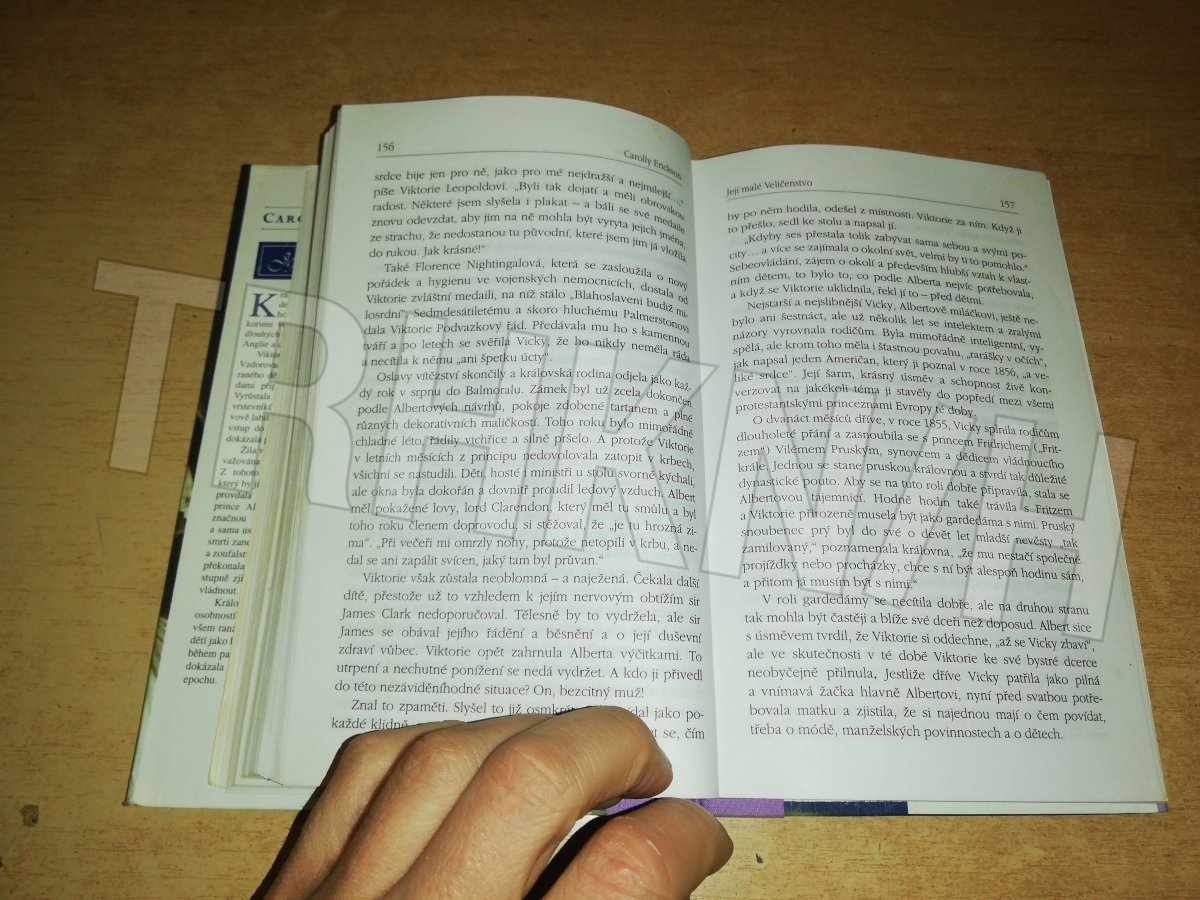 CARO
K
korunu
dlouhých
Anglie a
Viktor
Vzdorova
raného dě
dami při
Vyrůstala
vrstevník
vové lab
vstup do
dokázala
Žila v
važována
Z tohoto
který by ji
provdala
prince Al
značnou
a sama us
smrti zan
a zoufalst
překonala
stupně zji
vládnout.
Králo
osobnosti
všem raná
dětí jako l
během pa
dokázala
epochu.
156
Carolly Erickson
srdce bije jen pro ně, jako pro mé nejdražší a nejmilejší...,“
píše Viktorie Leopoldovi. „Byli tak dojatí a měli obrovskou
radost. Některé jsem slyšela i plakat – a báli se své medaile
znovu odevzdat, aby jim na ně mohla být vyryta jejich jména,
ze strachu, že nedostanou tu původní, které jsem jim já vložila
do rukou. Jak krásné!“
Také Florence Nightingalová, která se zasloužila o nový
pořádek a hygienu ve vojenských nemocnicích, dostala od
Viktorie zvláštní medaili, na níž stálo „Blahoslaveni budiž mi-
losrdní“. Sedmdesátiletému a skoro hluchému Palmerstonovi
dala Viktorie Podvazkový řád. Předávala mu ho s kamennou
tváří a po letech se svěřila Vicky, že ho nikdy neměla ráda
a necítila k němu „ani špetku úcty“.
Oslavy vítězství skončily a královská rodina odjela jako kaž-
dý rok v srpnu do Balmoralu. Zámek byl už zcela dokončen
podle Albertových návrhů, pokoje zdobené tartanem a plné
různých dekorativních maličkostí. Toho roku bylo mimořádně
chladné léto, řádily vichřice a silně pršelo. A protože Viktorie
v letních měsících z principu nedovolovala zatopit v krbech,
všichni se nastudili. Děti, hosté i ministři u stolu svorně kýchali,
ale okna byla dokořán a dovnitř proudil ledový vzduch, Albert
měl pokažené lovy, lord Clarendon, který měl tu smůlu a byl
toho roku členem doprovodu, si stěžoval, že „je tu hrozná zi-
ma“. „Při večeři mi omrzly nohy, protože netopili v krbu, a ne-
dal se ani zapálit svícen, jaký tam byl průvan.“
Viktorie však zůstala neoblomná – a naježená. Čekala další
dítě, přestože už to vzhledem k jejím nervovým obtížím sir
James Clark nedoporučoval. Tělesně by to vydržela, ale sir
James se obával jejího řádění a běsnění a o její duševní
zdraví vůbec. Viktorie opět zahrnula Alberta výčitkami. To
utrpení a nechutné ponížení se nedá vydržet. A kdo ji přivedl
do této nezáviděníhodné situace? On, bezcitný muž!
Znal to zpaměti. Slyšel to již osmkrát. jako po-
každé klidně, se, čím
Její malé Veličenstvo
157
by po něm hodila, odešel z místnosti. Viktorie za ním. Když ji
to přešlo, sedl ke stolu a napsal jí.
„Kdyby ses přestala tolik zabývat sama sebou a svými po-
city… a více se zajímala o okolní svět, velmi by ti to pomohlo.“
Sebeovládání, zájem o okolí a především hlubší vztah k vlast-
ním dětem, to bylo to, co podle Alberta nejvíc potřebovala,
a když se Viktorie uklidnila, řekl jí to – před dětmi.
Nejstarší a nejslibnější Vicky, Albertově miláčkovi, ještě ne-
bylo ani šestnáct, ale už několik let se intelektem a zralými
názory vyrovnala rodičům. Byla mimořádně inteligentní, vy-
spělá, ale krom toho měla i šťastnou povahu, „rarášky v očích“,
jak napsal jeden Američan, který ji poznal v roce 1856, „a ve-
liké srdce“. Její šarm, krásný úsměv a schopnost živě kon-
verzovat na jakékoli téma ji stavěly do popředí mezi všemi
protestantskými princeznami Evropy té doby.
O dvanáct měsíců dříve, v roce 1855, Vicky splnila rodičům
dlouholeté přání a zasnoubila se s princem Fridrichem („Frit-
zem“) Vilémem Pruským, synovcem a dědicem vládnoucího
krále. Jednou se stane pruskou královnou a stvrdí tak důležité
dynastické pouto. Aby se na tuto roli dobře připravila, stala se
Albertovou tajemnicí. Hodně hodin také trávila s Fritzem
a Viktorie přirozeně musela být jako gardedáma s nimi. Pruský
snoubenec prý byl do své o devět let mladší nevěsty „tak
zamilovaný,“ poznamenala královna, „že mu nestačí společné
projížďky nebo procházky, chce s ní být alespoň hodinu sám,
a přitom já musím být s nimi.“
V roli gardedámy se necítila dobře, ale na druhou stranu
tak mohla být častěji a blíže své dceři než doposud. Albert sice
s úsměvem tvrdil, že Viktorie si oddechne, „až se Vicky zbaví“,
ale ve skutečnosti v té době Viktorie ke své bystré dcerce
neobyčejně přilnula, Jestliže dříve Vicky patřila jako pilná
a vnímavá žačka hlavně Albertovi, nyní před svatbou potře-
bovala matku a zjistila, že si najednou mají o čem povídat,
třeba o módě, manželských povinnostech a o dětech.